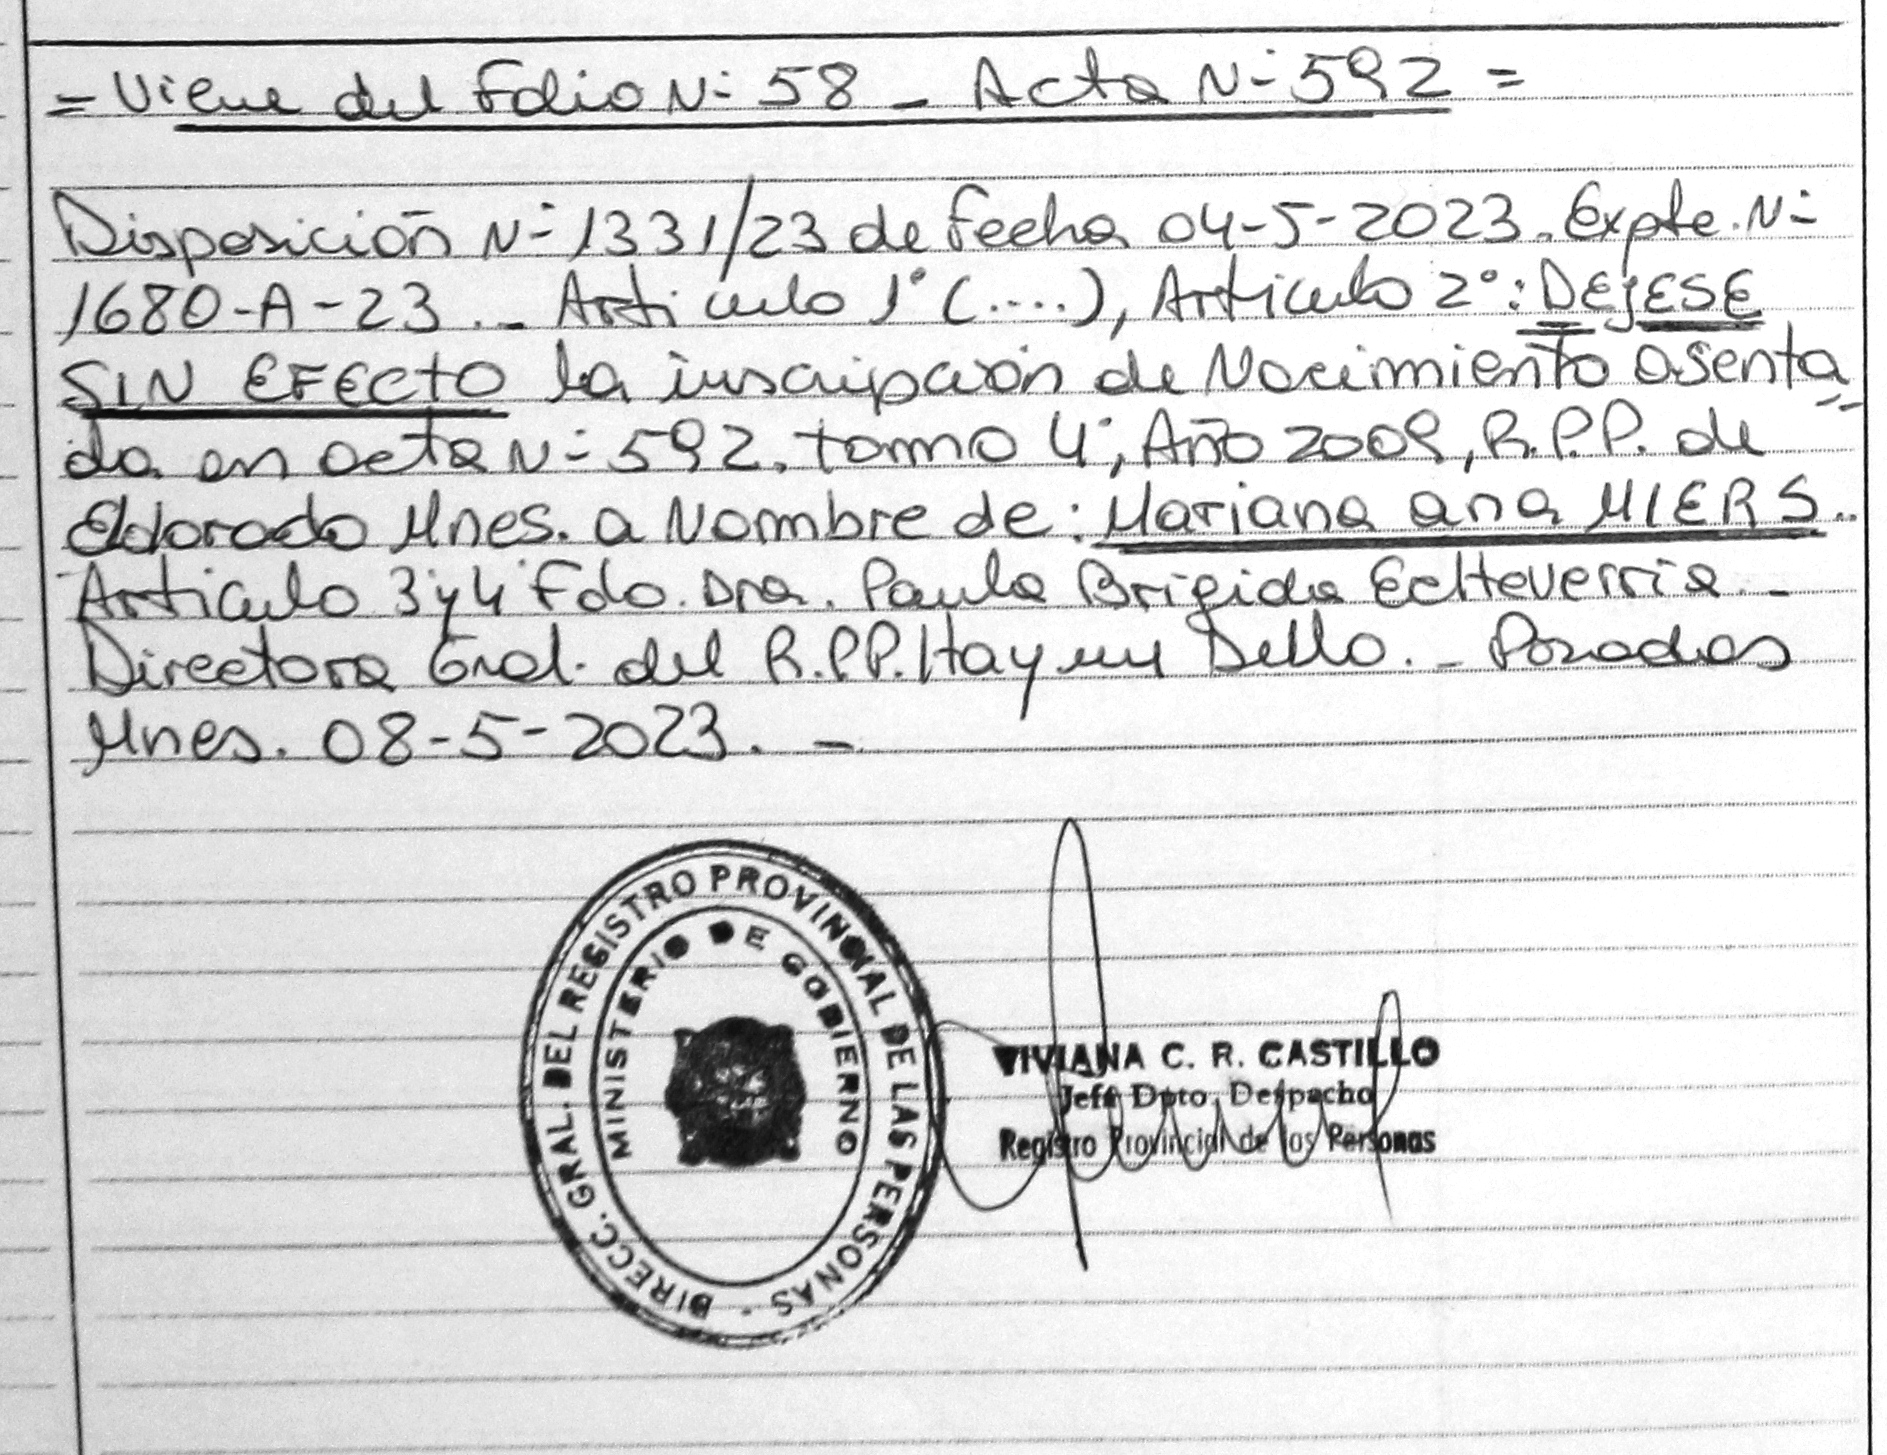 = Viene del Folio N= 58 - Acta N= 592 =
Disposición N= 1331/23 de Fecha 04-5-2023. Expte. N=
1680-A-23.- Articulo 1° (....), Articulo 2°: DEJESE
SIN EFECTO la inscripción de Nacimiento asenta
da en acta N= 592, tomo 4°, Año 2009, R.P.P. de
Eldorado Mnes. a Nombre de: Mariana ana MIERS..
Articulo 3 y 4 Fdo. Dra. Paula Brigida Echeverria.-
Directora Gral. del R.P.P. Hay un Sello.- Posadas
Mnes. 08-5-2023.-
DIRECC. GRAL. DEL REGISTRO PROVINCIAL DE LAS PERSONAS -
MINISTERIO DE GOBIERNO
VIVIANA C. R. CASTILLO
Jefe Dpto. Despacho
Registro Provincial de los Personas